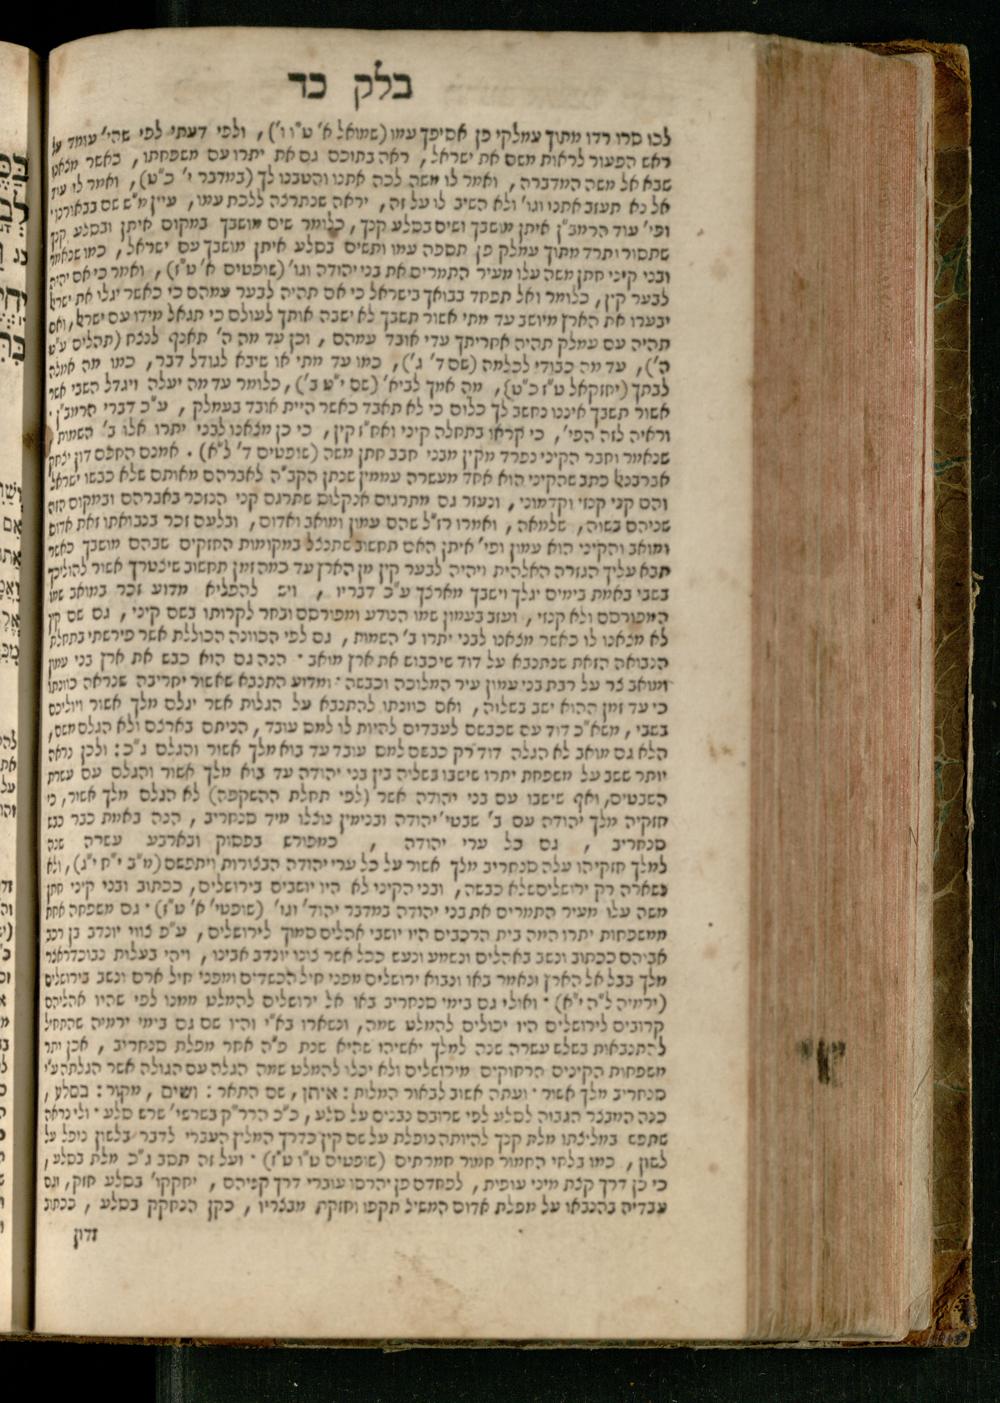 בלק כד
לכו סרו רדו מתוך עמלקי פן אסיפך עמו (שמואל א' ט"ו ו'), ולפי דעתי לפי שהי' עומד על
ראש הפעור לראות משם את ישראל, ראה בתוכם גם את יתרו עם משפחתו, כאשר מצאנו
שבא אל משה המדברה, ואמר לו משה לכה אתנו והטבנו לך (במדבר י' כ"ט), ואמר לו עוד
אל נא תעזב אתנו וגו' ולא השיב לו על זה, יראה שנתרצה ללכת עמו, עיין מ"ש שם בבאורנו
ופי' עוד הרמב"ן איתן מושבך ושים בסלע קנך, כלומר שים מושבך במקום איתן ובסלע קנך
שתסור ותרד מתוך עמלק פן תספה עמו ותשים בסלע איתן מושבך עם ישראל, כמו שנאמר
ובני קיני חתן משה עלו מעיר התמרים את בני יהודה וגו' (שופטים א' ט"ז), ואמר כי אם יהיה
לבער קין, כלומר ואל תפחד בבואך בישראל כי אם תהיה לבער עמהם כי כאשר יגלו את ישראל
יבערו את הארץ מיושב עד מתי אשור תשבך לא ישבה אותך לעולם כי תגאל מידו עם ישראל, ואם
תהיה עם עמלק תהיה אחריתך עדי אובד עמהם, וכן עד מה ה' תאנף לנצח (תהלים ע"ט
ה'), עד מה כבודי לכלמה (שם ד' ג'), כמו עד מתי או שיבא לגודל דבר, כמו מה אמלה
לבתך (יחזקאל ט"ז כ"ט), מה אמך לביא' (שם י"ט ב'), כלומר עד מה יעלה ויגדל השבי אשר
אשור תשבך איננו נחשב לך כלום כי לא תאבד כאשר היית אובד בעמלק, ע"כ דברי הרמב"ן.
וראיה לזה הפי', כי קראו בתחלה קיני ואח"ז קין, כי כן מצאנו לבני יתרו אלו ב' השמות
שנאמר וחבר הקיני נפרד מקין מבני חבב חתן משה (שופטים ד' י"א). אמנם החכם דון יצחק
אברבנאל כתב שהקיני הוא אחד מעשרה עממין שנתן הקב"ה לאברהם מאותם שלא כבשו ישראל
והם קני קנזי וקדמוני, ונעזר גם מתרגום אנקלוס שתרגם קני הנזכר באברהם ובמקום הזה
שניהם בשוה, שלמאה, ואמרו רז"ל שהם עמון ומואב ואדום, ובלעם זכר בנבואתו זאת אדום
ומואב והקיני הוא עמון ופי' איתן האם תחשוב שתנצל במקומות החזקים שבהם מושבך כאשר
תבא עליך הגזרה האלהית ויהיה לבער קין מן הארץ עד כמה זמן תחשוב שיצטרך אשור להוליכך
בשבי באמת בימים יגלך וישבך מארצך ע"כ דבריו, ויש להפליא מדוע זכר במואב שמו
המפורסם ולא קנזי, ועזב בעמון שמו הנודע ומפורסם ובחר לקרותו בשם קיני, גם שם קין
לא מצאנו לו כאשר מצאנו לבני יתרו ב' השמות, גם לפי הכוונה הכוללת אשר פירשתי בתחלת
הנבואה הזאת שנתנבא על דוד שיכבוש את ארץ מואב. הנה גם הוא כבש את ארץ בני עמון
ומואב צר על רבת בני עמון עיר המלוכה וכבשה. ומדוע התנבא שאשור יחריבה שנראה כוונתו
כי עד זמן ההוא ישב בשלוה, ואם כוונתו להתנבא על הגלות אשר יגלם מלך אשור ויוליכם
בשבי, משא"כ דוד עם שכבשם לעבדים להיות לו למס עובד, הניתם בארצם ולא הגלם משם,
הלא גם מואב לא הגלה דוד רק כבשם למס עובד עד בוא מלך אשור והגלם ג"כ: ולכן נראה
יותר ששב על משפחת יתרו שישבו בשליה בין בני יהודה עד בוא מלך אשור והגלם עם עשרת
השבטים, ואף שישבו עם בני יהודה אשר (לפי תחלת ההשקפה) לא הגלם מלך אשור, כי
חזקיה מלך יהודה עם ב' שבטי' יהודה ובנימין נוצלו מיד סנחריב, הנה באמת כבר כבש
סנחריב, גם כל ערי יהודה, כמפורש בפסוק ובארבע עשרה שנה
למלך חזקיהו עלה סנחריב מלך אשור על כל ערי יהודה הבצורות ויתפשם (מ"ב י"ח י"ג), ולא
נשארה רק ירושלים שלא כבשה, ובני הקיני לא היו יושבים בירושלים, ככתוב ובני קיני חתן
משה עלו מעיר התמרים את בני יהודה במדבר יהוד' וגו' (שופטי' א' ט"ז). גם משפחה אחת
ממשפחות יתרו המה בית הרכבים היו יושבי אהלים סמוך לירושלים, ע"פ צווי יונדב בן רכב
אביהם ככתוב ונשב באהלים ונשמע ונעש ככל אשר צונו יונדב אבינו, ויהי בעלות נבוכדראצר
מלך בבל אל הארץ ונאמר באו ונבוא ירושלים מפני חיל הכשדים ומפני חיל ארם ונשב בירושלים
(ירמיה ל"ה י"א). ואולי גם בימי סנחריב באו אל ירושלים להמלט ממנו לפי שהיו אהליהם
קרובים לירושלים היו יכולים להמלט שמה, ונשארו בא"י והיו שם גם בימי ירמיה שהתחיל
להתנבאות בשלש עשרה שנה למלך יאשיהו שהיא שנת פ"ה אחר מפלת סנחריב, אכן יתר
משפחות הקינים הרחוקים מירושלים ולא יכלו להמלט שמה הגלה עם הגולה אשר הגלתה ע"י
סנחריב מלך אשור. ועתה אשוב לבאור המלות: איתן, שם התאר: ושים, מקור: בסלע,
כנה המבצר הגבוה לסלע לפי שרובם נבנים על סלע, כ"כ הרד"ק בשרשי' שרש סלע. ולי נראה
שתפש במליצתו מלת קנך להיותה נופלת על שם קין כדרך המליץ העברי לדבר בלשון נופל על
לשון, כמו בלחי החמור חמור חמרתים (שופטים ט"ו ט"ז). ועל זה תסב ג"כ מלת בסלע,
כי כן דרך קצת מיני עופית, לפחדם פן יהרסו עוברי דרך קניהם, יחקקו' בסלע חזק, וגם
עבדיה בהנבאו על מפלת אדום המשיל תקפו וחזקת מבצריו, כקן הנחקק בסלע, ככתוב
זדון